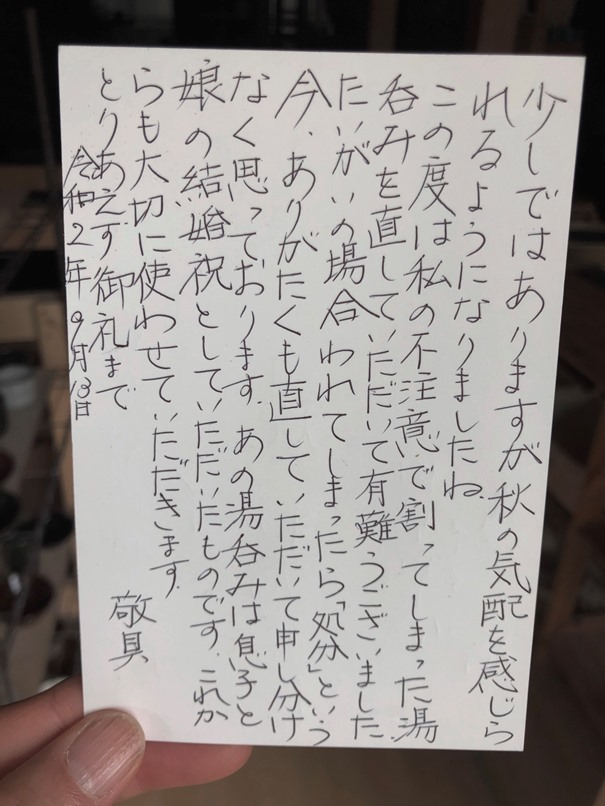 少しではありますが秋の気配を感じら
れるようになりましたね。
この度は私の不注意で割ってしまった湯
呑みを直していただいて有難うございました。
たいがいの場合われてしまったら「処分」という
今、ありがたくも直していただいて申し分け
なく思っております。あの湯呑みは息子と
娘の結婚祝としていただいたものです。これか
らも大切に使わせていただきます。
とりあえす御礼まで
敬具
令和2年9月13日